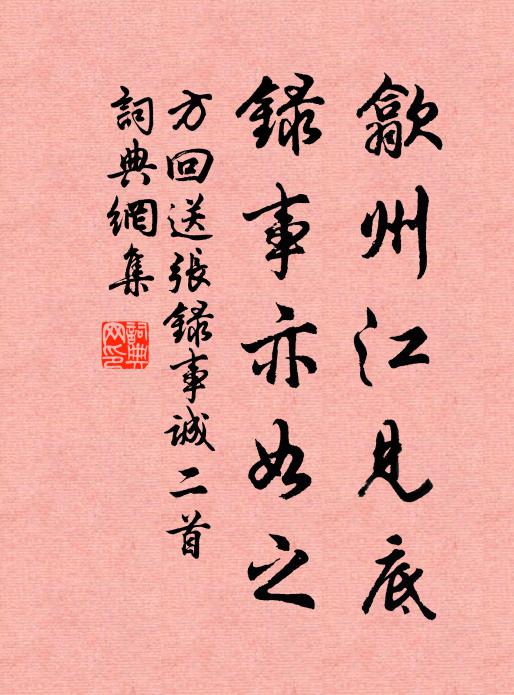 歙州江見底
録事亦如之
方回送張録事誠二首
詞典網集
詞典
网印